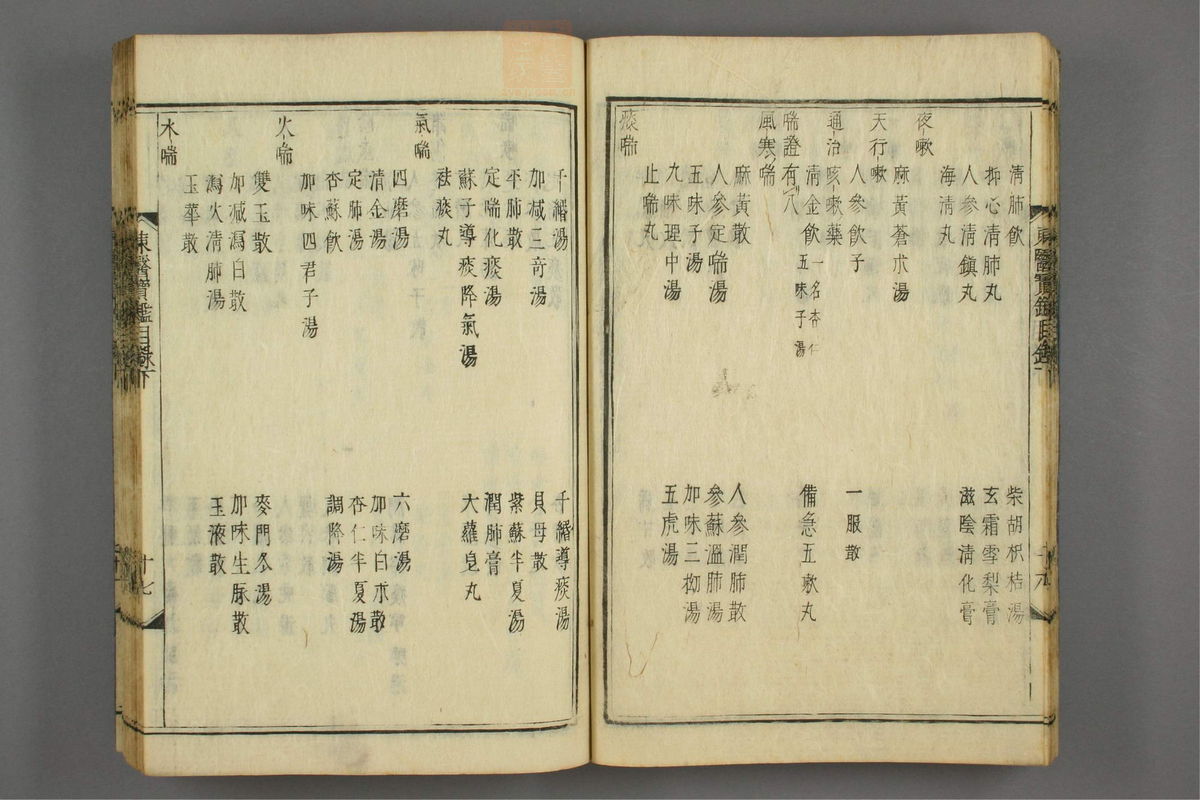 清肺飲　柴胡枳桔湯
抑心清肺丸　玄霜雪梨膏
人參清鎮丸　滋陰清化膏
海清丸
夜嗽
麻黃蒼朮湯
天行嗽
人參飮子　一服散
通治咳嗽藥
清金飮一名杏仁五味子湯　備急五嗽丸
喘證有八
風寒喘
麻黃散　人參潤肺散
人參定喘湯　參蘇溫肺湯
五味子湯　加味三拗湯
九味理中湯　五虎湯
止喘丸
痰喘
東醫寶鑑目錄下　十六
千緡湯　千緡導痰湯
加減三奇湯　貝母散
平肺散　紫蘇半夏湯
定喘化痰湯　潤肺膏
蘇子導痰降氣湯　大蘿皀丸
祛痰丸
氣喘
四磨湯　六磨湯
清金湯　加味白朮散
定肺湯　杏仁半夏湯
杏蘇飮　調降湯
加味四君子湯
火喘
雙玉散　麥門冬湯
加減瀉白散　加味生脉散
瀉火清肺湯　玉液散
玉華散
水喘
東醫寶鑑目錄下　十七